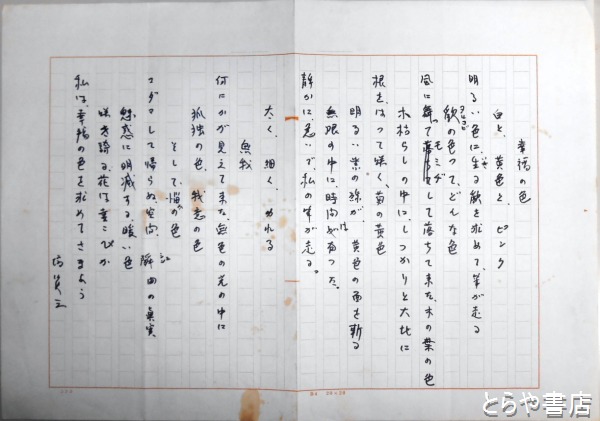 幸福の色
白と、黄色と、ピンク
明るい色に、生る歓を求めて、筆が走る
歓の色って、どんな色
ヨロコビ
風に舞って落ちて来た、木の葉の色
モミジ
木枯らしの中に、しっかりと大地に
根を、はって咲く、菊の黄色
明るい紫の線が、黄色の面を斬る
無限の中に、時間が有った。
静かに、急いで、私の筆が走る。
太く、細く、かれる
無我
何にかが見えて来た、色の光の中に
孤独の色、残恋の色
そして、悩の色
コダマして帰らぬ空間、瞬間の真実
魅惑に明滅する、暖い色
咲き誇る、花は、喜こびか
私は、幸福の色を求めてさまよう
とらや書店